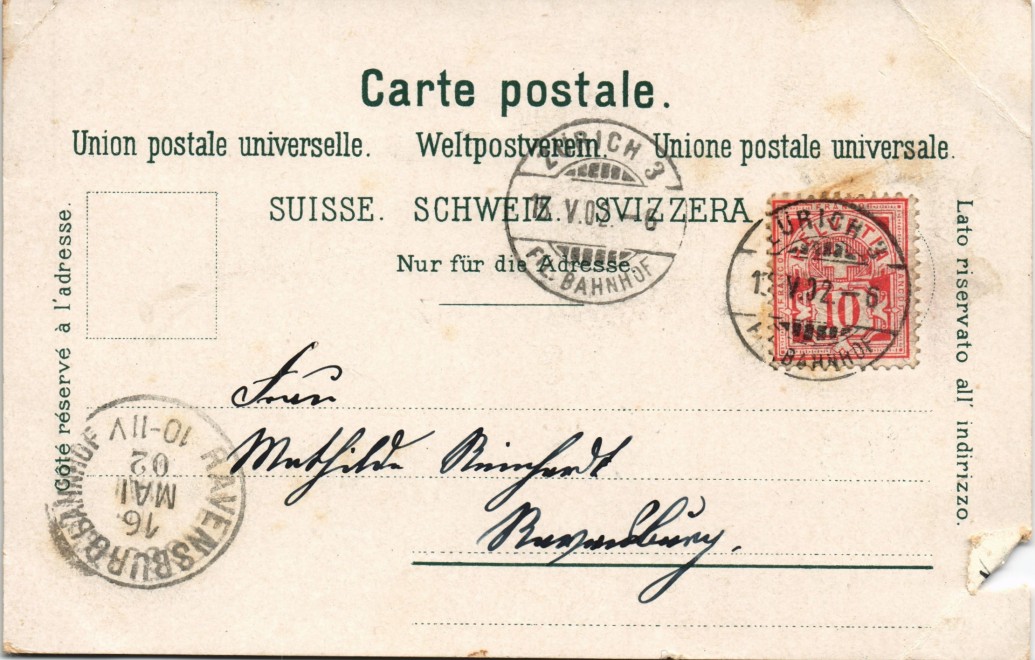 Carte postale.
Union postale universelle. Weltpostverein. Unione postale universale.
SUISSE. SCHWEIZ. SVIZZERA.
Nur für die Adresse.
Côté réservé à l'adresse.
Lato riservato all' indirizzo.
ZÜRICH 3
V.02. - 6
FIL. BAHNHOF
ZÜRICH 3
V.02. - 6
BAHNHOF
10
Frau
Mathilde Reinhardt
Ravensburg.
RAVENSBURG BAHNHOF
16.
MAI
02
10-11V